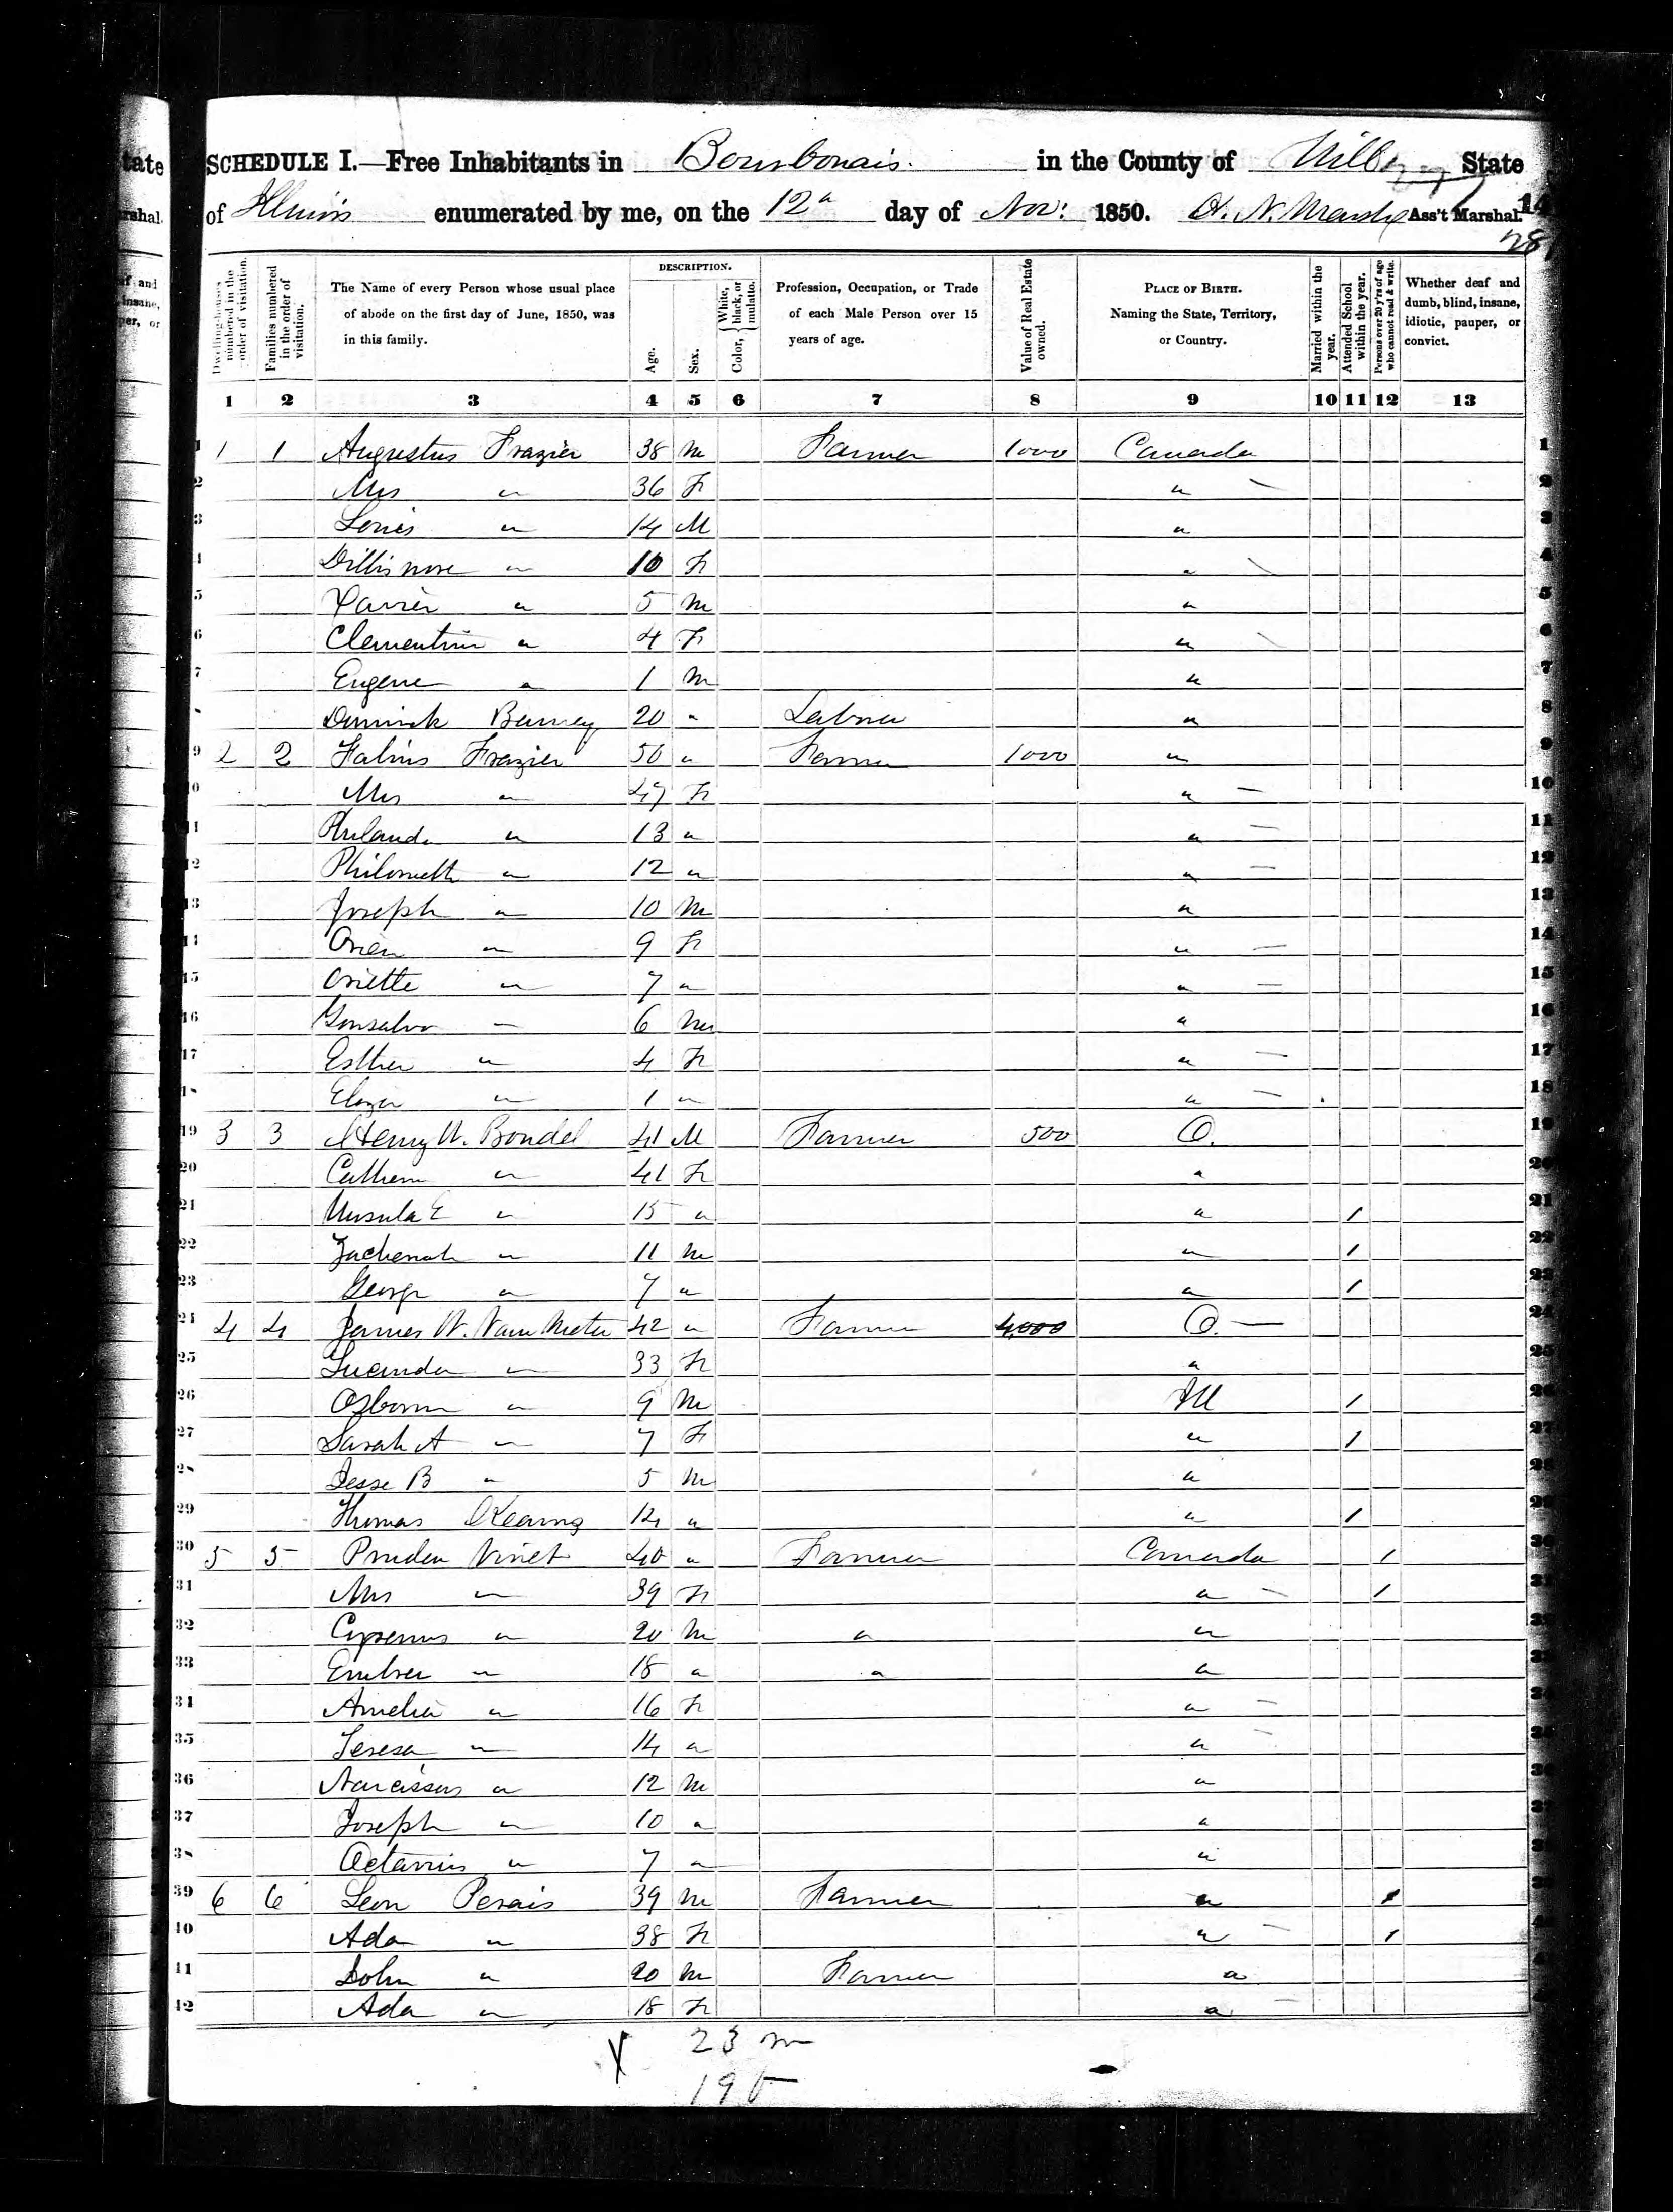 SCHEDULE I.—Free Inhabitants in Bourbonais. in the County of Will State
of Illinois enumerated by me, on the 12" day of Nov: 1850. H. N. Marsh Ass't Marshal.
DESCRIPTION.
Dwelling-houses numbered in the order of visitation.
Families numbered in the order of visitation.
The Name of every Person whose usual place of abode on the first day of June, 1850, was in this family.
Age.
Sex.
Color, { White, black, or mulatto.
Profession, Occupation, or Trade of each Male Person over 15 years of age.
Value of Real Estate owned.
PLACE OF BIRTH. Naming the State, Territory, or Country.
Married within the year.
Attended School within the year.
Persons over 20 y'rs of age who cannot read & write.
Whether deaf and dumb, blind, insane, idiotic, pauper, or convict.
1 2 3 4 5 6 7 8 9 10 11 12 13
1 1 1 Augustus Frazier 38 M Farmer 1000 Canada 1
2 Mrs " 36 F " 2
3 Louis " 14 M " 3
4 " 10 F " 4
5 Xavier " 5 M " 5
6 Clementine " 4 F " 6
7 Eugene " 1 M " 7
Dominick 20 " Laborer " 8
9 2 2 Frazier 50 " Farmer 1000 " 9
10 Mrs " 47 F " 10
11 " 13 " " 11
12 " 12 " " 12
13 Joseph " 10 M " 13
14 " 9 F " 14
15 Oriette " 7 " " 15
16 Gonsalvo " 6 M " 16
17 Esther " 4 F " 17
18 " 1 " " 18
19 3 3 Henry W. Bondel 41 M Farmer 500 O. 19
20 " 41 F " 20
21 Ursula E " 15 " " 1 21
22 " 11 M " 1 22
23 George " 7 " " 1 23
24 4 4 James W. Van Meter 42 " Farmer 4,000 O. 24
25 Lucinda " 33 F " 25
26 Osborn " 9 M Ill 1 26
27 Sarah A " 7 F " 1 27
28 Jesse B " 5 M " 28
29 Thomas Kearns 14 " " 1 29
30 5 5 Vinet 40 " Farmer Canada 1 30
31 Mrs " 39 F " 1
32 " 20 M " "
33 " 18 " " "
34 Amelia " 16 F "
35 Teresa " 14 " "
36 Narcissus " 12 M "
37 Joseph " 10 " "
38 Octavius " 7 " "
39 6 6 Leon Perais 39 M Farmer " 1
40 Ada " 38 F " 1
41 John " 20 M Farmer "
42 Ada " 18 F "
23 m
19 F